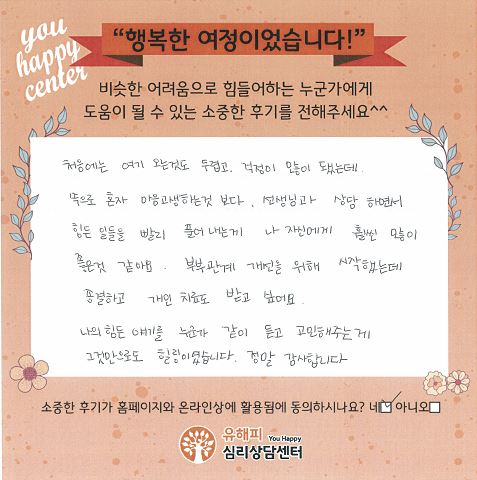 you
happy
center
“행복한 여정이었습니다!”
비슷한 어려움으로 힘들어하는 누군가에게
도움이 될 수 있는 소중한 후기를 전해주세요^^
처음에는 여기 오는것도 두렵고, 걱정이 많이 됐는데.
속으로 혼자 마음고생하는것 보다, 선생님과 상담 하면서
힘든 일들을 빨리 풀어 내는게 나 자신에게 훨씬 많이
좋은것 같아요. 부부관계 개선을 위해 시작했는데
종결하고 개인 치료도 받고 싶어요.
나의 힘든 얘기를 누군가 같이 듣고 고민해주는게
그것만으로도 힐링이였습니다. 정말 감사합니다
소중한 후기가 홈페이지와 온라인상에 활용됨에 동의하시나요? 네 아니오
유해피 You Happy
심리상담센터